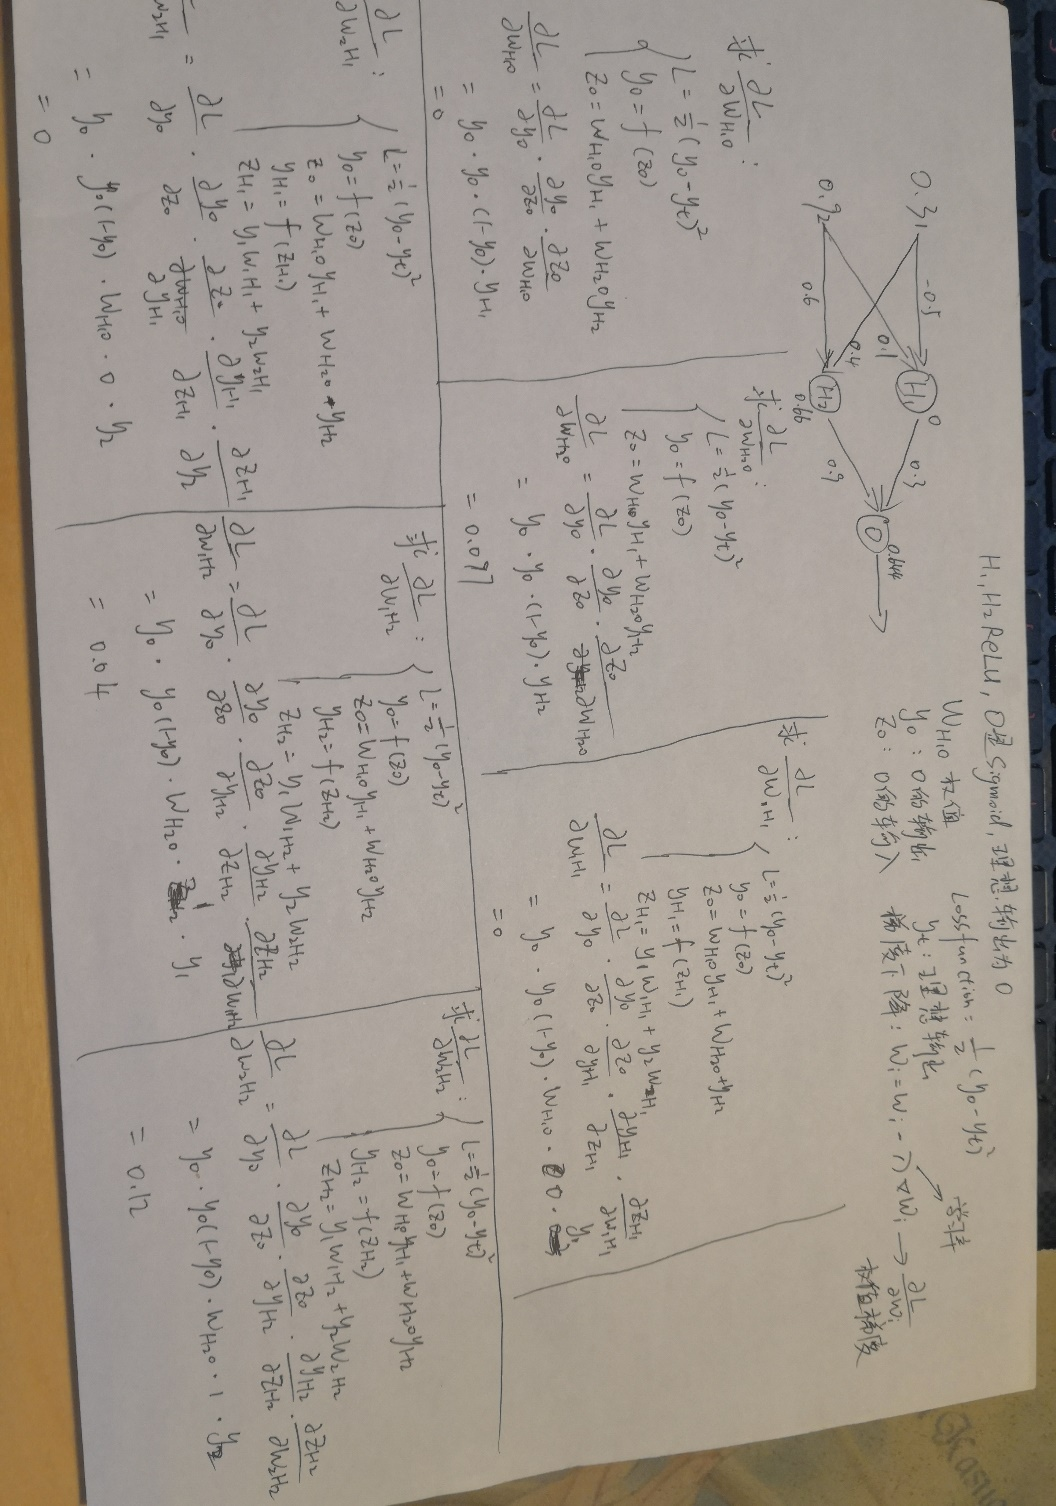 H₁, H₂ ReLU, O是Sigmoid, 理想输出为0
Loss function = 1/2 (y₀ - yₜ)²
W_H₁O 权值
y₀ : O的输出
yₜ : 理想输出
z₀ : O的输入
梯度下降 : wᵢ = wᵢ - η∇wᵢ → ∂L/∂wᵢ
学习率
权值梯度
0.3
-0.5
H₁
0
0.3
0.1
0.4
0.9
0.6
H₂
0.66
0.9
O
0.644
求 ∂L/∂W_H₁O :
L = 1/2 (y₀ - yₜ)²
y₀ = f(z₀)
z₀ = W_H₁O y_H₁ + W_H₂O y_H₂
∂L/∂W_H₁O = ∂L/∂y₀ · ∂y₀/∂z₀ · ∂z₀/∂W_H₁O
= y₀ · y₀ · (1-y₀) · y_H₁
= 0
求 ∂L/∂W_H₂O :
L = 1/2 (y₀ - yₜ)²
y₀ = f(z₀)
z₀ = W_H₁O y_H₁ + W_H₂O y_H₂
∂L/∂W_H₂O = ∂L/∂y₀ · ∂y₀/∂z₀ · ∂z₀/∂W_H₂O
= y₀ · y₀ · (1-y₀) · y_H₂
= 0.097
求 ∂L/∂W₁H₁ :
L = 1/2 (y₀ - yₜ)²
y₀ = f(z₀)
z₀ = W_H₁O y_H₁ + W_H₂O y_H₂
y_H₁ = f(z_H₁)
z_H₁ = y₁ W₁H₁ + y₂ W₂H₁
∂L/∂W₁H₁ = ∂L/∂y₀ · ∂y₀/∂z₀ · ∂z₀/∂y_H₁ · ∂y_H₁/∂z_H₁ · ∂z_H₁/∂W₁H₁
= y₀ · y₀(1-y₀) · W_H₁O · 0 · y₁
= 0
∂L/∂W₂H₁ :
L = 1/2 (y₀ - yₜ)²
y₀ = f(z₀)
z₀ = W_H₁O y_H₁ + W_H₂O y_H₂
y_H₁ = f(z_H₁)
z_H₁ = y₁ W₁H₁ + y₂ W₂H₁
W₂H₁ = ∂L/∂y₀ · ∂y₀/∂z₀ · ∂z₀/∂y_H₁ · ∂y_H₁/∂z_H₁ · ∂z_H₁/∂y₂
= y₀ · y₀(1-y₀) · W_H₁O · 0 · y₂
= 0
求 ∂L/∂W₁H₂ :
L = 1/2 (y₀ - yₜ)²
y₀ = f(z₀)
z₀ = W_H₁O y_H₁ + W_H₂O y_H₂
y_H₂ = f(z_H₂)
z_H₂ = y₁ W₁H₂ + y₂ W₂H₂
∂L/∂W₁H₂ = ∂L/∂y₀ · ∂y₀/∂z₀ · ∂z₀/∂y_H₂ · ∂y_H₂/∂z_H₂ · ∂z_H₂/∂W₁H₂
= y₀ · y₀(1-y₀) · W_H₂O · 1 · y₁
= 0.04
求 ∂L/∂W₂H₂ :
L = 1/2 (y₀ - yₜ)²
y₀ = f(z₀)
z₀ = W_H₁O y_H₁ + W_H₂O y_H₂
y_H₂ = f(z_H₂)
z_H₂ = y₁ W₁H₂ + y₂ W₂H₂
∂L/∂W₂H₂ = ∂L/∂y₀ · ∂y₀/∂z₀ · ∂z₀/∂y_H₂ · ∂y_H₂/∂z_H₂ · ∂z_H₂/∂W₂H₂
= y₀ · y₀(1-y₀) · W_H₂O · 1 · y₂
= 0.12